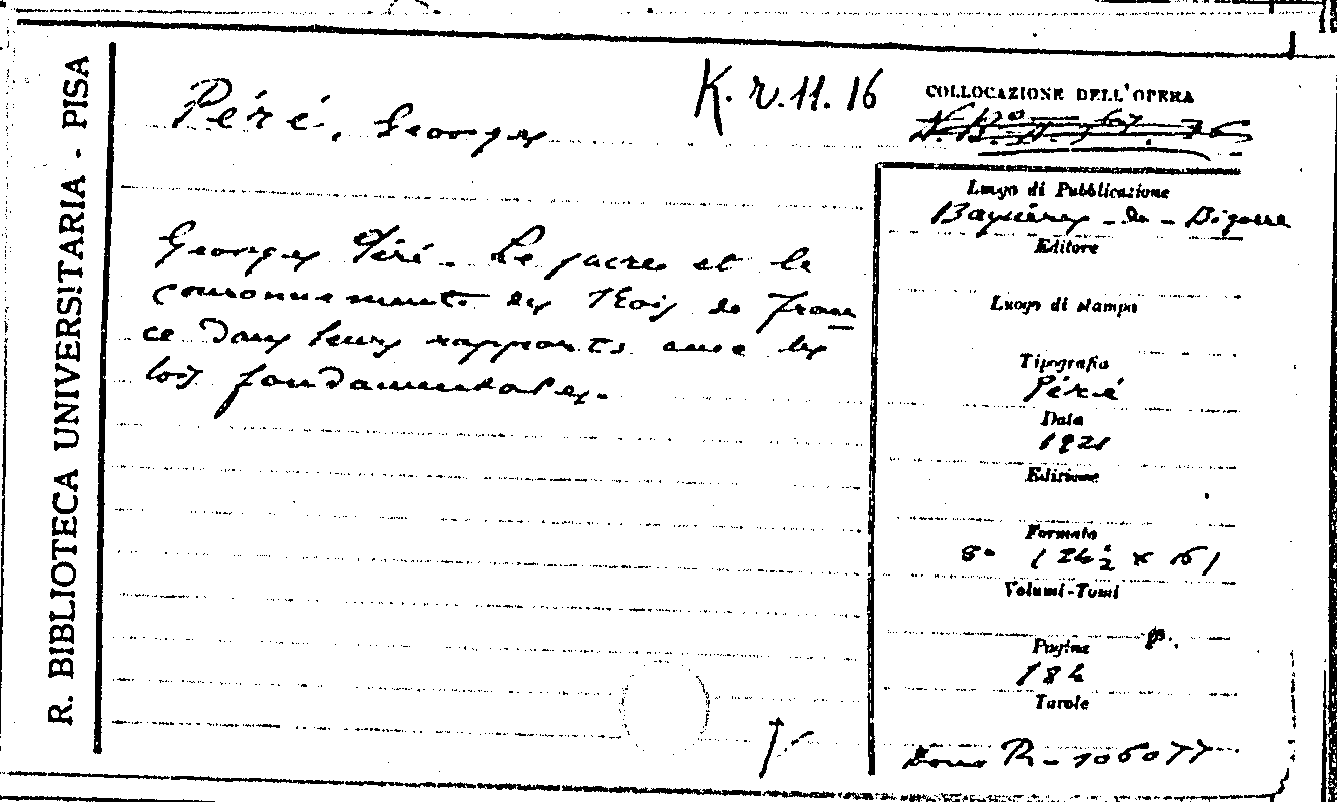 R. BIBLIOTECA UNIVERSITARIA - PISA
Péré, Georges
K. r. 11. 16
COLLOCAZIONE DELL'OPERA
Georges Péré - Le sacre et le
couronnement des Rois de Fran
ce dans leurs rapports avec les
lois fondamentales.
Luogo di Pubblicazione
Bagnères - de - Bigorre
Editore
Luogo di stampa
Tipografia
Péré
Data
1921
Edizione
Formato
8° (24½ x 16)
Volumi-Tomi
Pagine
p.
184
Tavole
Dono R - 106077